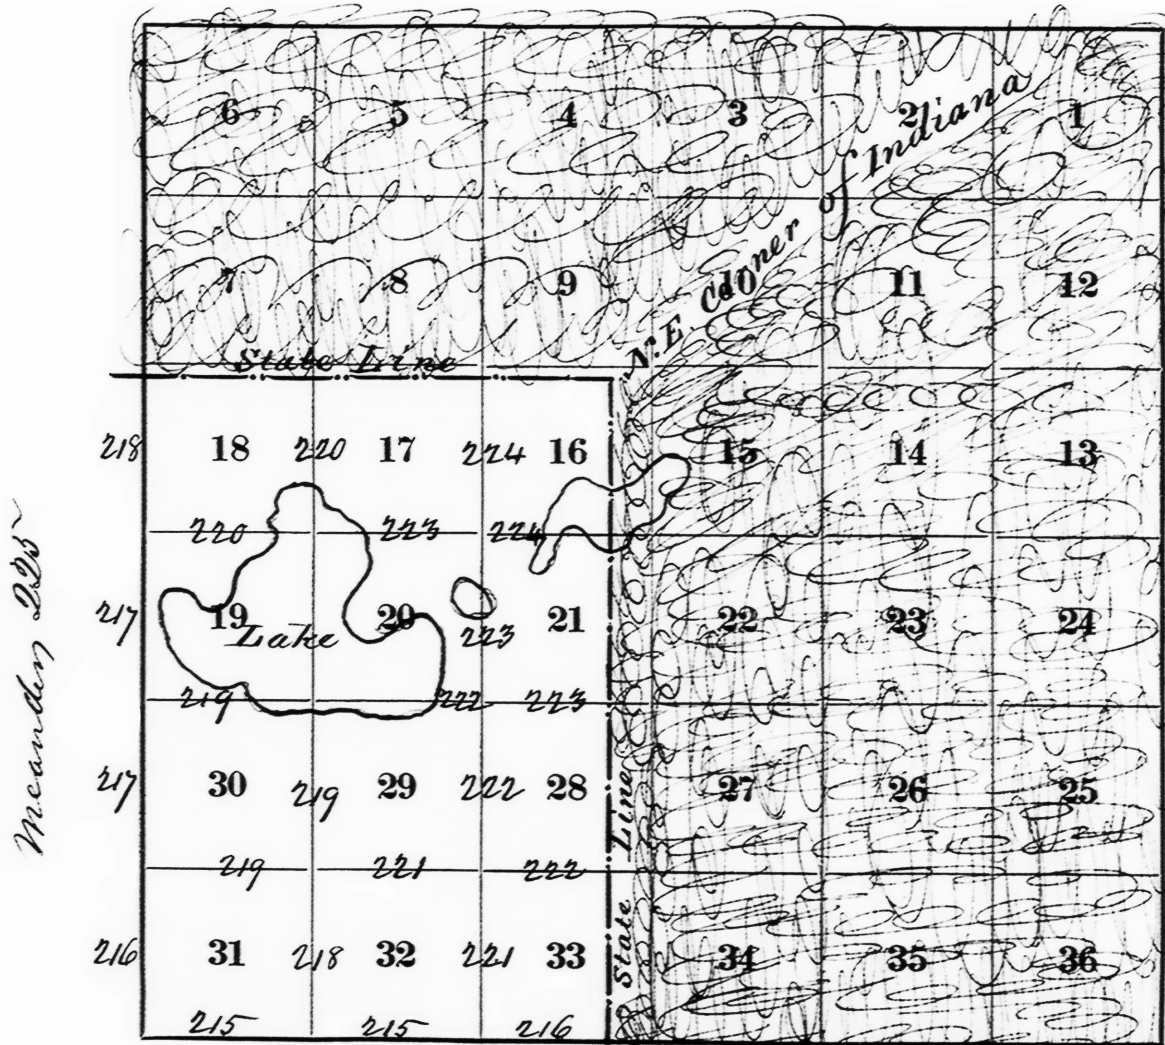 6 5 4 3 2 1
N.E. Coner of Indiana
7 8 9 10 11 12
State Line
218 18 220 17 224 16 15 14 13
220 223 224
217 19 20 21 22 23 24
Lake 223
219 222 223
217 30 219 29 222 28 27 26 25
219 221 222
216 31 218 32 221 33 34 35 36
215 215 216
State Line
Meander 225